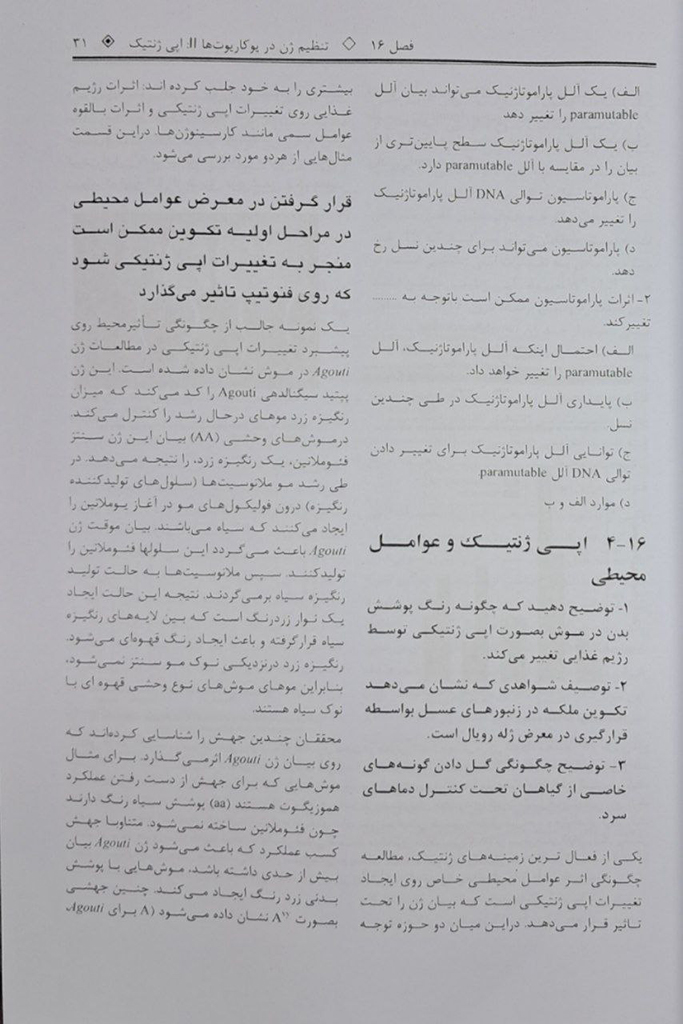 فصل ۱۶ ◇ تنظیم ژن در یوکاریوت‌ها II: اپی ژنتیک ۳۱
الف) یک آلل پاراموتاژنیک می‌تواند بیان آلل
paramutable را تغییر دهد
ب) یک آلل پاراموتاژنیک سطح پایین‌تری از
بیان را در مقایسه با آلل paramutable دارد.
ج) پاراموتاسیون توالی DNA آلل پاراموتاژنیک
را تغییر می‌دهد.
د) پاراموتاسیون می‌تواند برای چندین نسل رخ
دهد.
۲- اثرات پاراموتاسیون ممکن است باتوجه به ..........
تغییر کند.
الف) احتمال اینکه آلل پاراموتاژنیک، آلل
paramutable را تغییر خواهد داد.
ب) پایداری آلل پاراموتاژنیک در طی چندین
نسل.
ج) توانایی آلل پاراموتاژنیک برای تغییر دادن
توالی DNA آلل paramutable.
د) موارد الف و ب
۱۶-۴ اپی ژنتیک و عوامل
محیطی
۱- توضیح دهید که چگونه رنگ پوشش
بدن در موش بصورت اپی ژنتیکی توسط
رژیم غذایی تغییر می‌کند.
۲- توصیف شواهدی که نشان می‌دهد
تکوین ملکه در زنبورهای عسل بواسطه
قرارگیری در معرض ژله رویال است.
۳- توضیح چگونگی گل دادن گونه‌های
خاصی از گیاهان تحت کنترل دماهای
سرد.
یکی از فعال ترین زمینه‌های ژنتیک، مطالعه
چگونگی اثر عوامل محیطی خاص روی ایجاد
تغییرات اپی ژنتیکی است که بیان ژن را تحت
تاثیر قرار می‌دهد. دراین میان دو حوزه توجه
بیشتری را به خود جلب کرده اند: اثرات رژیم
غذایی روی تغییرات اپی ژنتیکی و اثرات بالقوه
عوامل سمی مانند کارسینوژن‌ها. دراین قسمت
مثال‌هایی از هردو مورد بررسی می‌شود.
قرار گرفتن در معرض عوامل محیطی
در مراحل اولیه تکوین ممکن است
منجر به تغییرات اپی ژنتیکی شود
که روی فنوتیپ تاثیر می‌گذارد
یک نمونه جالب از چگونگی تأثیرمحیط روی
پیشبرد تغییرات اپی ژنتیکی در مطالعات ژن
Agouti در موش نشان داده شده است. این ژن
پپتید سیگنالدهی Agouti را کد می‌کند که میزان
رنگیزه زرد موهای درحال رشد را کنترل می‌کند.
درموش‌های وحشی (AA) بیان این ژن سنتز
فئوملانین، یک رنگیزه زرد، را نتیجه می‌دهد. در
طی رشد مو ملانوسیت‌ها (سلول‌های تولیدکننده
رنگیزه) درون فولیکول‌های مو در آغاز یوملانین را
ایجاد می‌کنند که سیاه می‌باشند. بیان موقت ژن
Agouti باعث می‌گردد این سلولها فئوملانین را
تولیدکنند. سپس ملانوسیت‌ها به حالت تولید
رنگیزه سیاه برمی‌گردند. نتیجه این حالت ایجاد
یک نوار زردرنگ است که بین لایه‌های رنگیزه
سیاه قرارگرفته و باعث ایجاد رنگ قهوه‌ای می‌شود.
رنگیزه زرد درنزدیکی نوک مو سنتز نمی‌شود،
بنابراین موهای موش‌های نوع وحشی قهوه ای با
نوک سیاه هستند.
محققان چندین جهش را شناسایی کرده‌اند که
روی بیان ژن Agouti اثرمی‌گذارد. برای مثال
موش‌هایی که برای جهش از دست رفتن عملکرد
هموزیگوت هستند (aa) پوشش سیاه رنگ دارند
چون فئوملانین ساخته نمی‌شود. متناوبا جهش
کسب عملکرد که باعث می‌شود ژن Agouti بیان
بیش از حدی داشته باشد، موش‌هایی با پوشش
بدنی زرد رنگ ایجاد می‌کند. چنین جهشی
بصورت Aᵛʸ نشان داده می‌شود (A برای Agouti